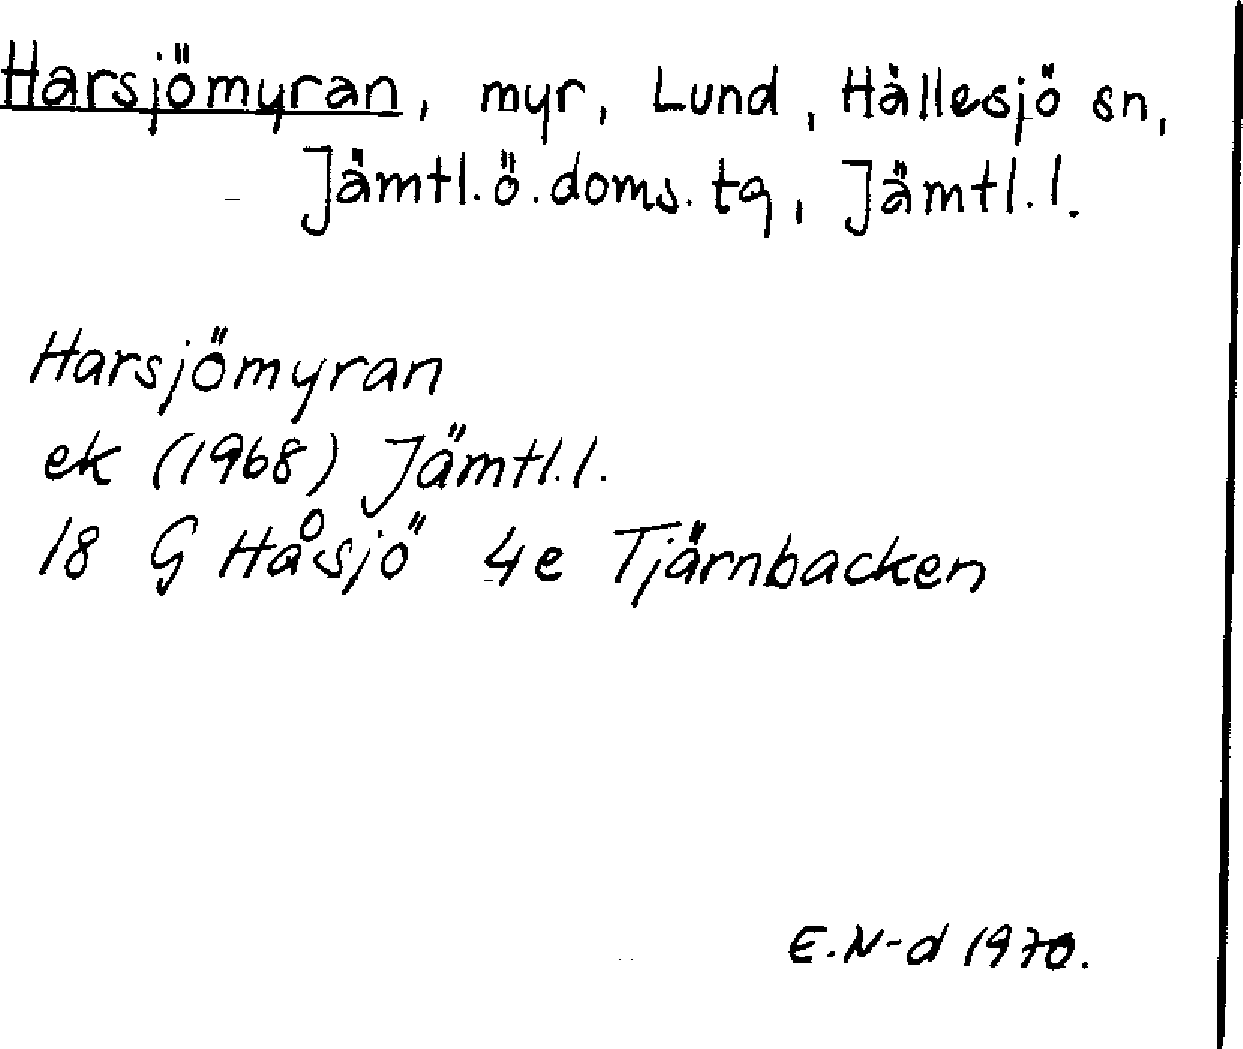 Harsjömyran, myr, Lund, Hällesjö sn,
Jämtl.ö.doms.tg, Jämtl.l.
Harsjömyran
ek (1968) Jämtl.l.
18 G Håsjö 4e Tjärnbacken
E.N-d 1970.